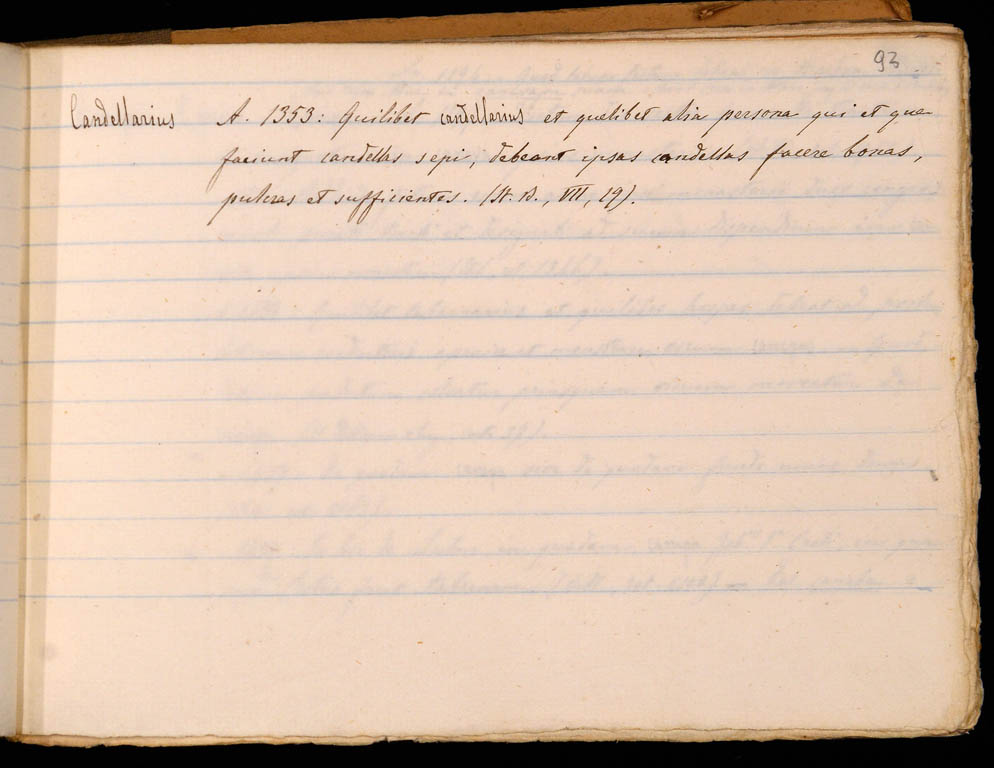 93
Candellarius A. 1353: Quilibet candellarius et quelibet alia persona qui et que
faciunt candellas sepi, debeant ipsas candellas facere bonas,
pulcras et sufficientes. (St. B., III, 19).